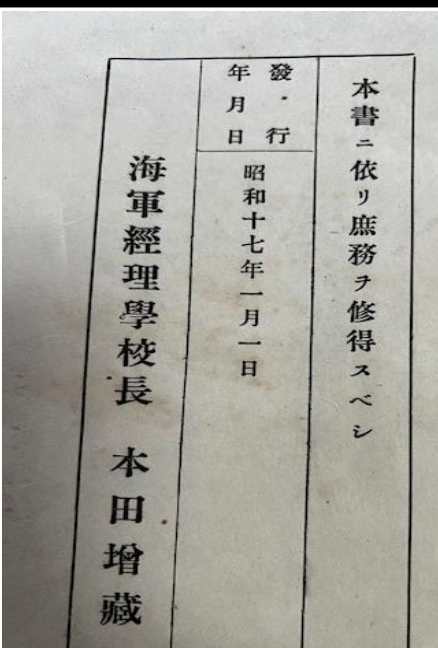 本書ニ依リ庶務ヲ修得スベシ
發行
年月日
昭和十七年一月一日
海軍經理學校長 本田增藏